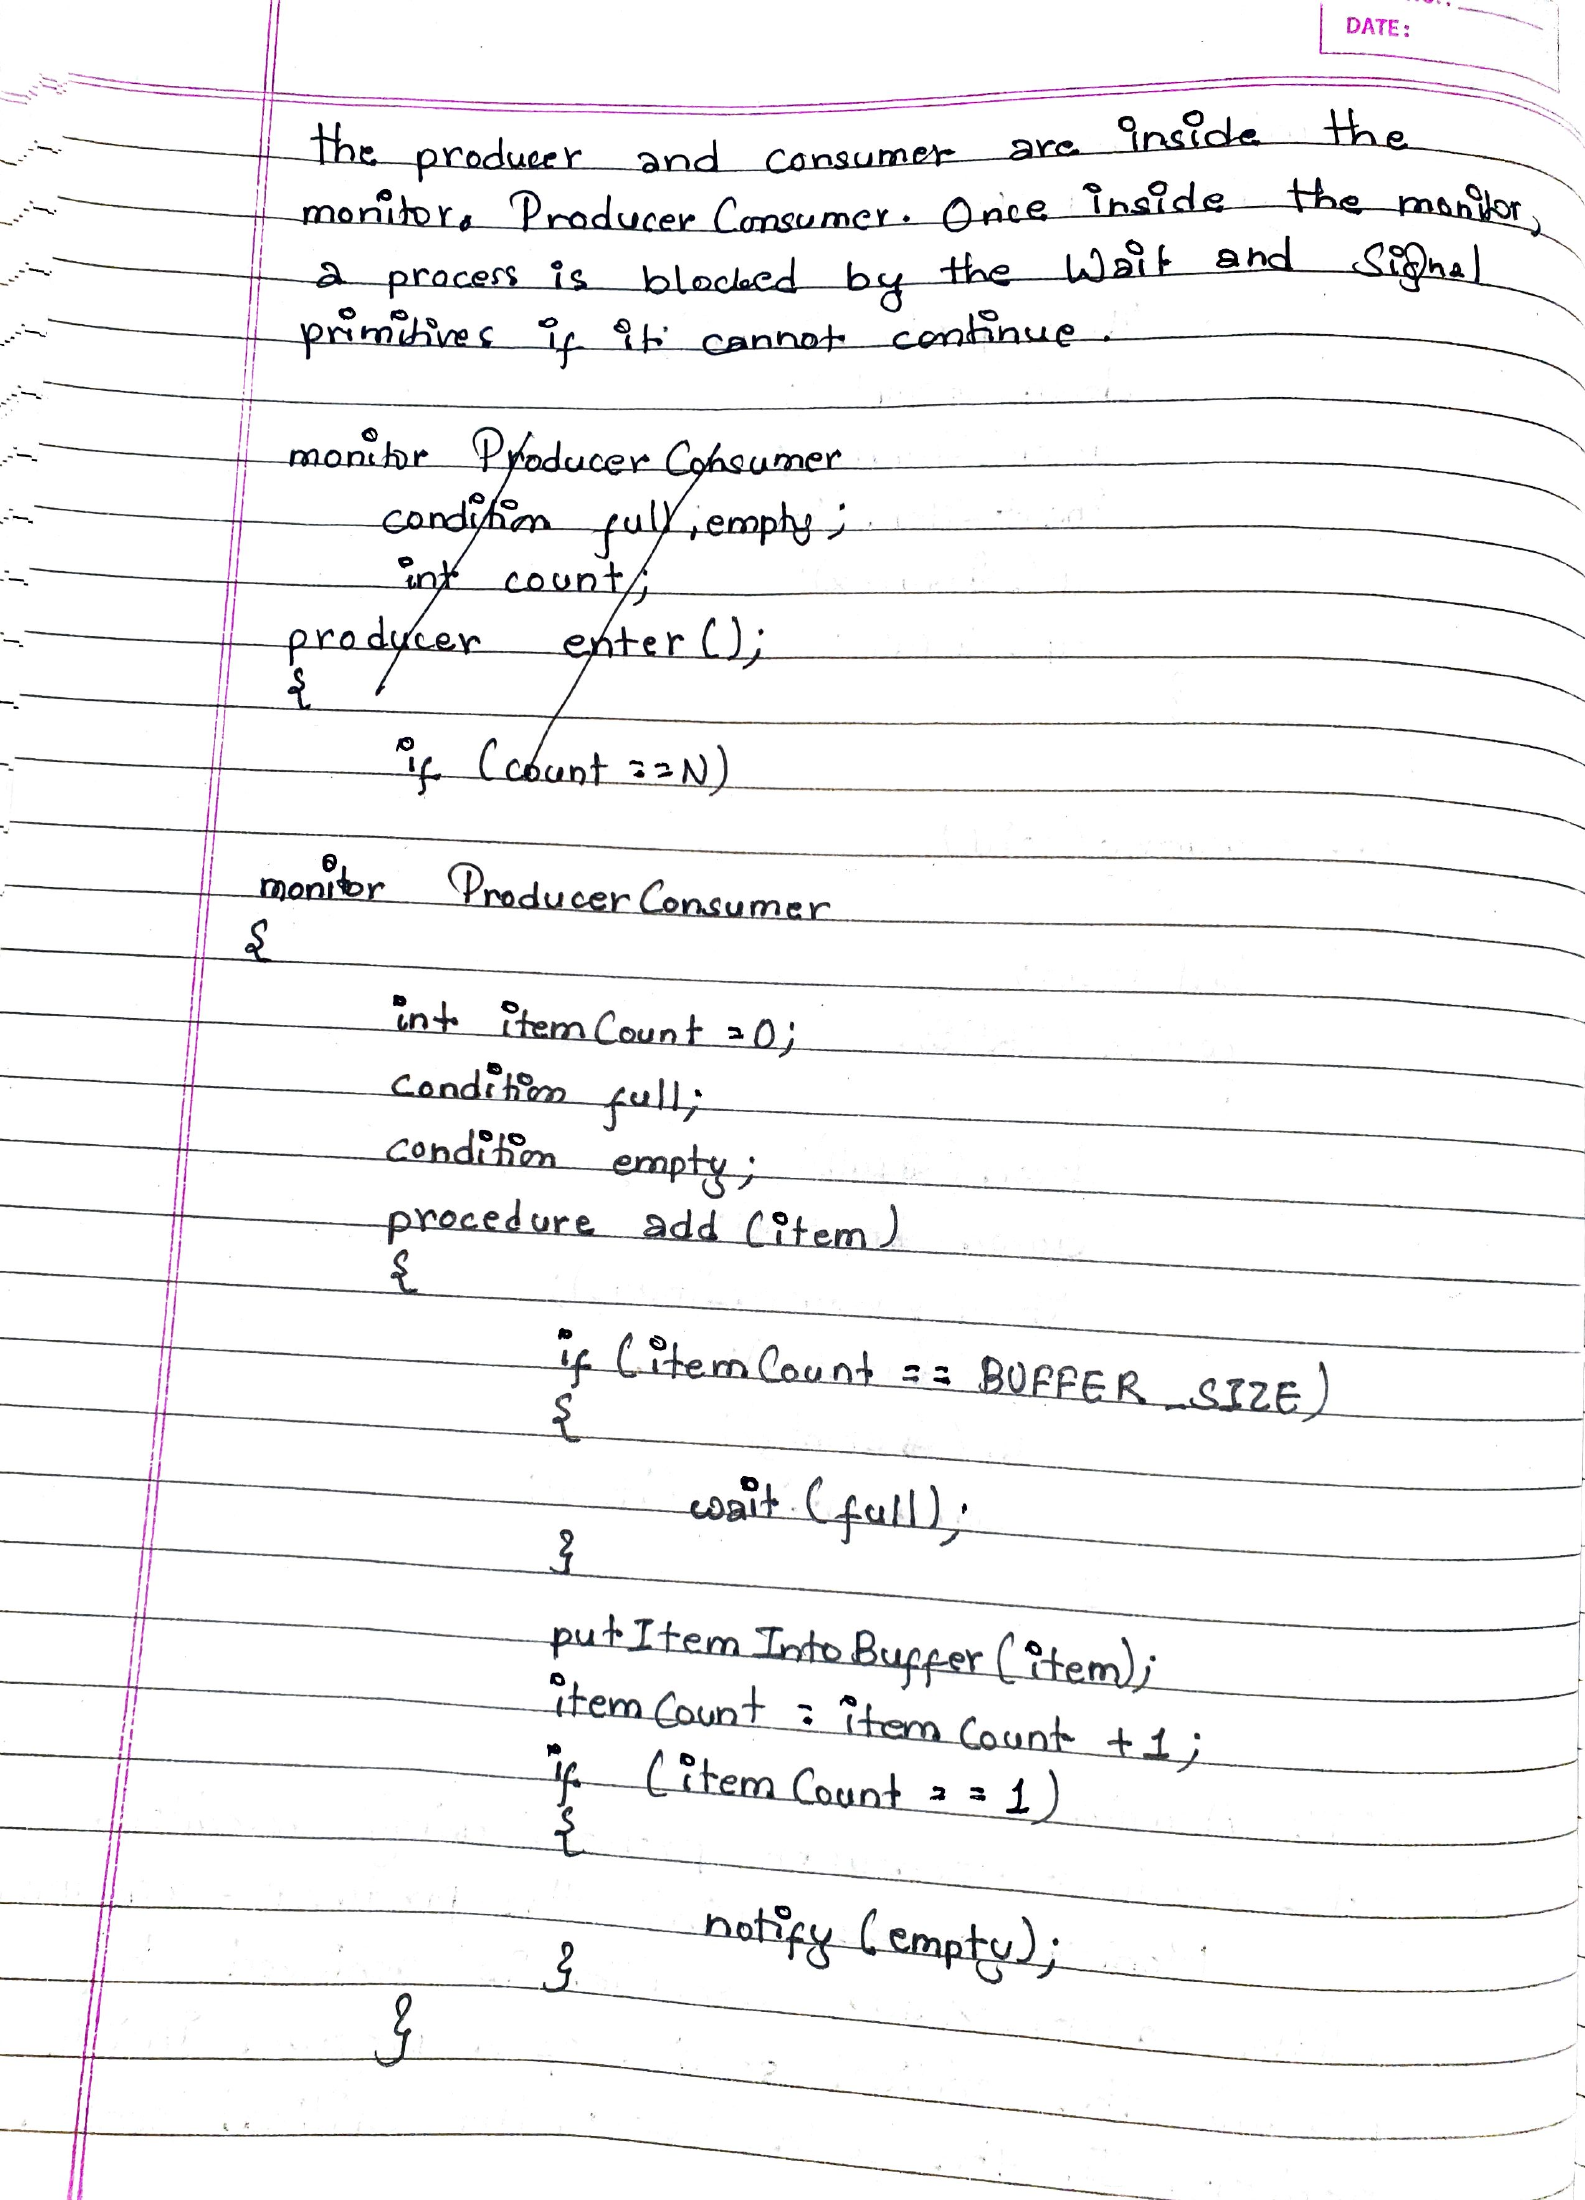 DATE:
the producer and consumer are inside the
monitor. Producer Consumer. Once inside the monitor,
a process is blocked by the Wait and Signal
primitives if it cannot continue.
monitor Producer Consumer
condition full, empty;
int count;
producer enter();
{
if (count ==N)
monitor Producer Consumer
{
int itemCount =0;
condition full;
condition empty;
procedure add (item)
{
if (itemCount == BUFFER_SIZE)
{
wait (full);
}
putItemIntoBuffer (item);
itemCount = itemCount +1;
if (itemCount == 1)
{
notify (empty);
}
}